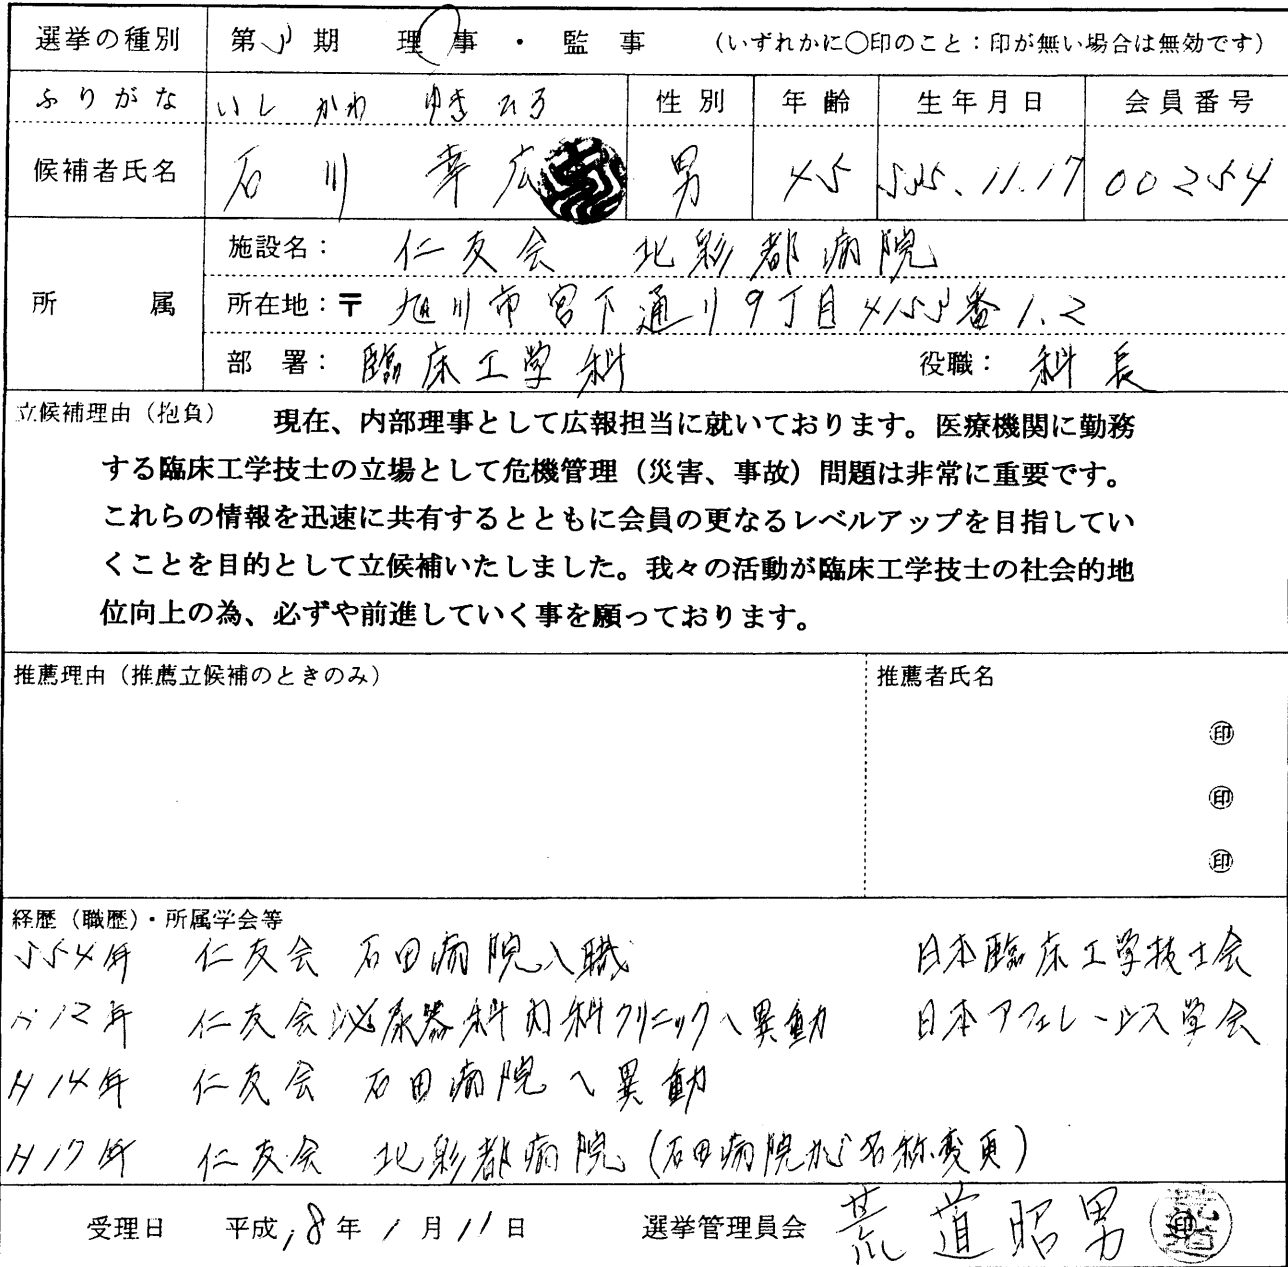 選挙の種別 第5期 理事・監事 (いずれかに○印のこと:印が無い場合は無効です)
ふりがな いしかわ ゆきひろ 性別 年齢 生年月日 会員番号
候補者氏名 石川 幸広 男 45 S35.11.17 00254
所属 施設名: 仁友会 北彩都病院
所在地:〒 旭川市宮下通り9丁目4155番1.2
部署: 臨床工学科 役職: 科長
立候補理由(抱負) 現在、内部理事として広報担当に就いております。医療機関に勤務
する臨床工学技士の立場として危機管理(災害、事故)問題は非常に重要です。
これらの情報を迅速に共有するとともに会員の更なるレベルアップを目指してい
くことを目的として立候補いたしました。我々の活動が臨床工学技士の社会的地
位向上の為、必ずや前進していく事を願っております。
推薦理由(推薦立候補のときのみ) 推薦者氏名
印
印
印
経歴(職歴)・所属学会等
S54年 仁友会 石田病院入職 日本臨床工学技士会
H12年 仁友会泌尿器科内科クリニックへ異動 日本アフェレーシス学会
H14年 仁友会 石田病院へ異動
H17年 仁友会 北彩都病院(石田病院から名称変更)
受理日 平成18年1月11日 選挙管理員会 荒道昭男 印